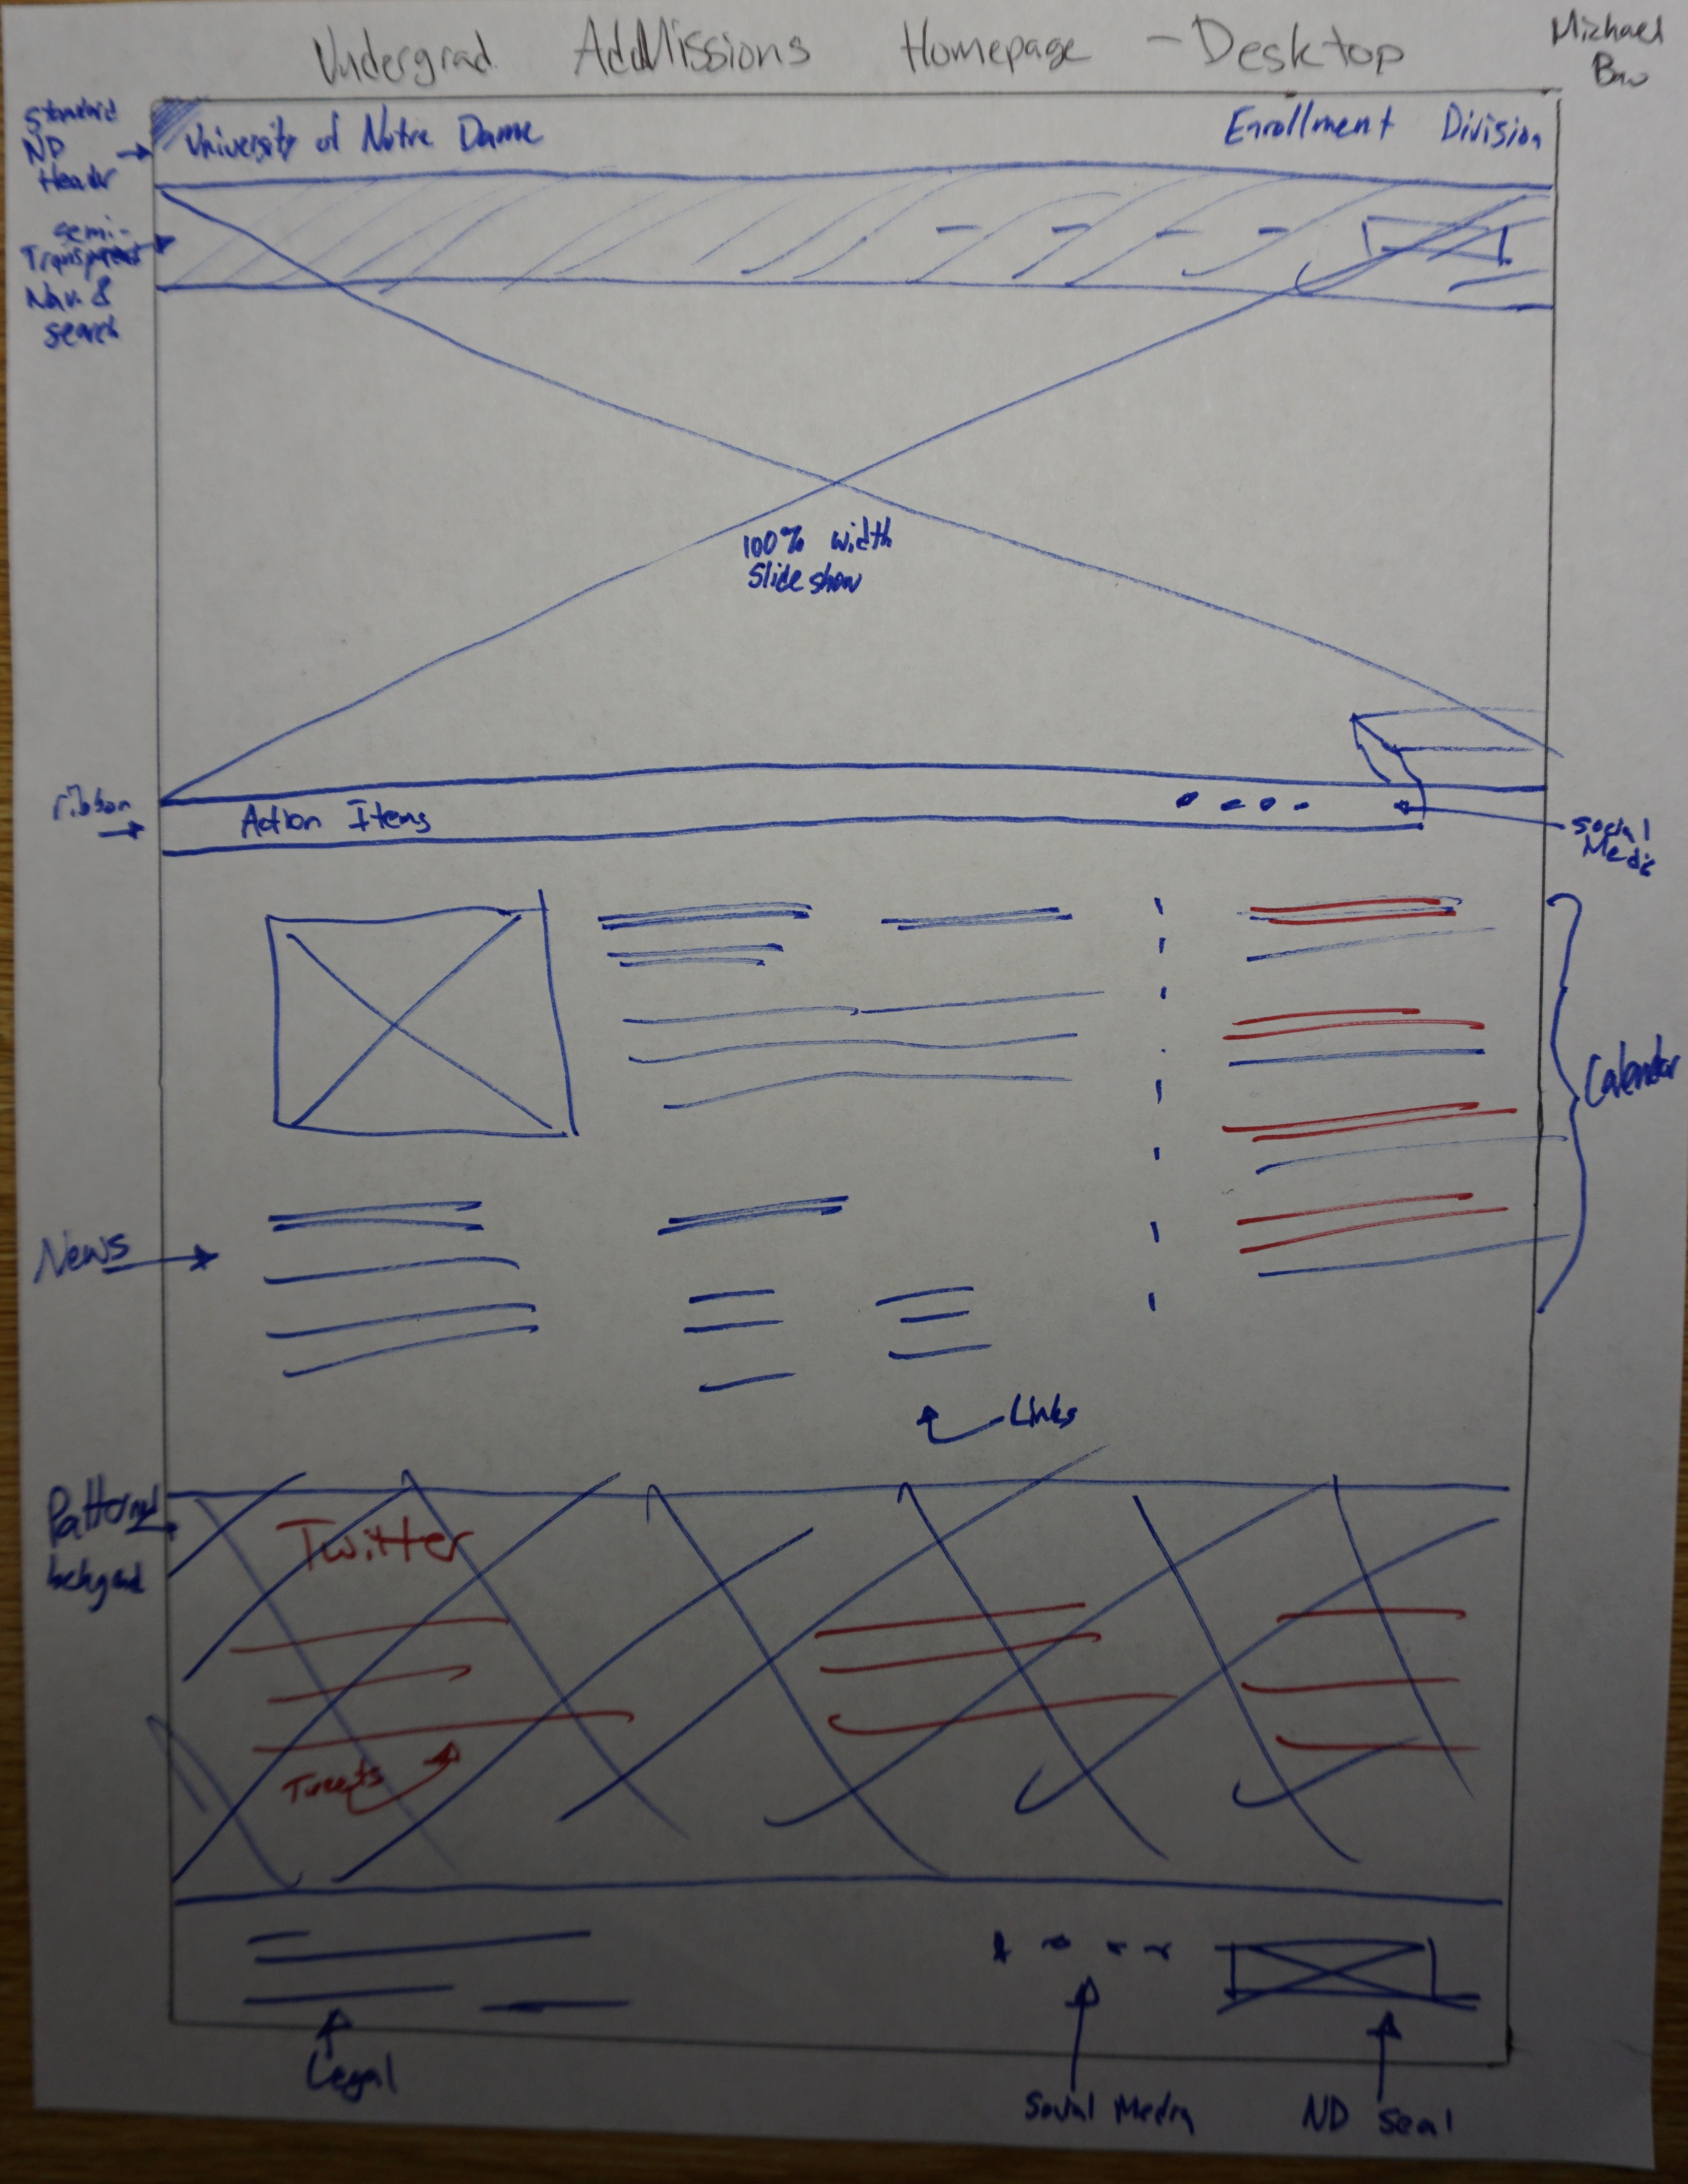 Undergrad AddMissions Homepage - Desktop
Michael
Standard
ND
Header
University of Notre Dame
Enrollment Division
semi-
Transparent
Nav. &
search
100% width
Slide show
ribbon
Action Items
social
Media
Calendar
News
Links
Patterned
Twitter
Tweets
Legal
Social Media
ND seal